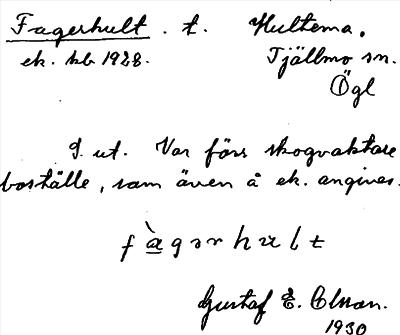 Fagerhult. t. Hultema.
ek. kb 1928. Tjällmo sn.
Ögl
I. ut. Var förr skogvaktare
boställe, som även å ek. angives.
f à g ə r h u l t
Gustaf E. Olsson.
1930